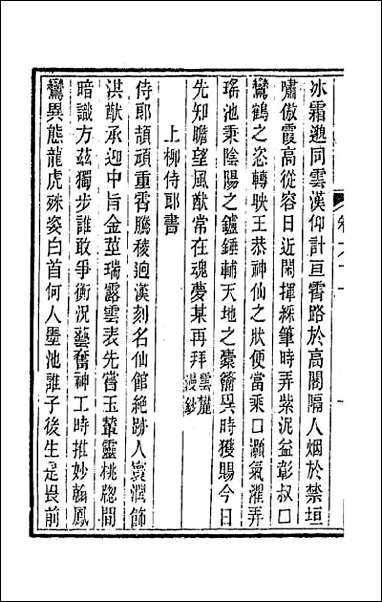 冰霜邈同雲漢仰計亘霄路於高閣隔人烟於禁垣
嘯傲霞高從容日近閑揮綵筆時弄紫泥益彰叔口
鸞鶴之恣轉映王恭神仙之狀便當乘口灝氣濯弄
瑤池秉陰陽之鑪錘輔天地之橐籥異時獲賜今日
先知瞻望風猷常在魂夢某再拜雲麓漫鈔
上柳侍郎書
侍郎頡頏重香騰稜迥漢刻名仙館絶跡人寰潤飾
洪猷承迎中旨金莖瑞露雲表先嘗玉輦靈桃牕間
暗識方茲獨步誰敢爭衡況藝奮神工時推妙翰鳳
鸞異態龍虎殊姿白首何人墨池誰子後生是畏前